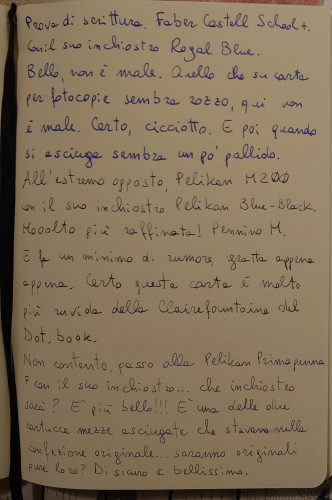 Prova di scrittura. Faber Castell School+.
Con il suo inchiostro Royal Blue.
Bello, non è male. Quello che su carta
per fotocopie sembra rozzo, qui non
è male. Certo, cicciotto. E poi quando
si asciuga sembra un po' pallido.
All'estremo opposto, Pelikan M200
con il suo inchiostro Pelikan Blue-Black.
Mooolto più raffinata! Pennino M.
E fa un minimo di rumore, gratta appena
appena. Certo questa carta è molto
più ruvida della Clairefountaine del
Dot.book.
Non contento, passo alla Pelikan Primapenna
F con il suo inchiostro... che inchiostro
sarà? E' più bello!!! E' una delle due
cartucce mezze asciugate che stavano nella
confezione originale... saranno originali
pure loro? Di sicuro è bellissimo.